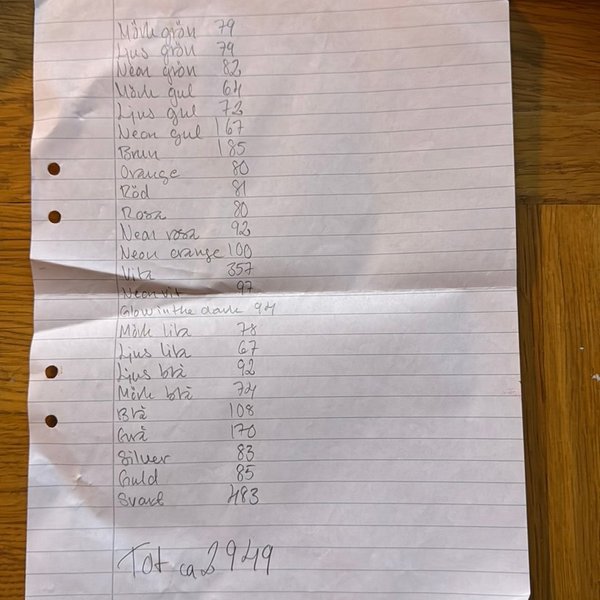 Mörk grön 79
Ljus grön 74
Neon grön 82
Mörk gul 64
Ljus gul 72
Neon gul 167
Brun 185
Orange 80
Röd 81
Rosa 80
Neon rosa 92
Neon orange 100
Vita 357
Neon vit 97
Glow in the dark 94
Mörk lila 78
Ljus lila 67
Ljus blå 92
Mörk blå 74
Blå 108
Grå 170
Silver 83
Guld 85
Svart 483
Tot ca 2949